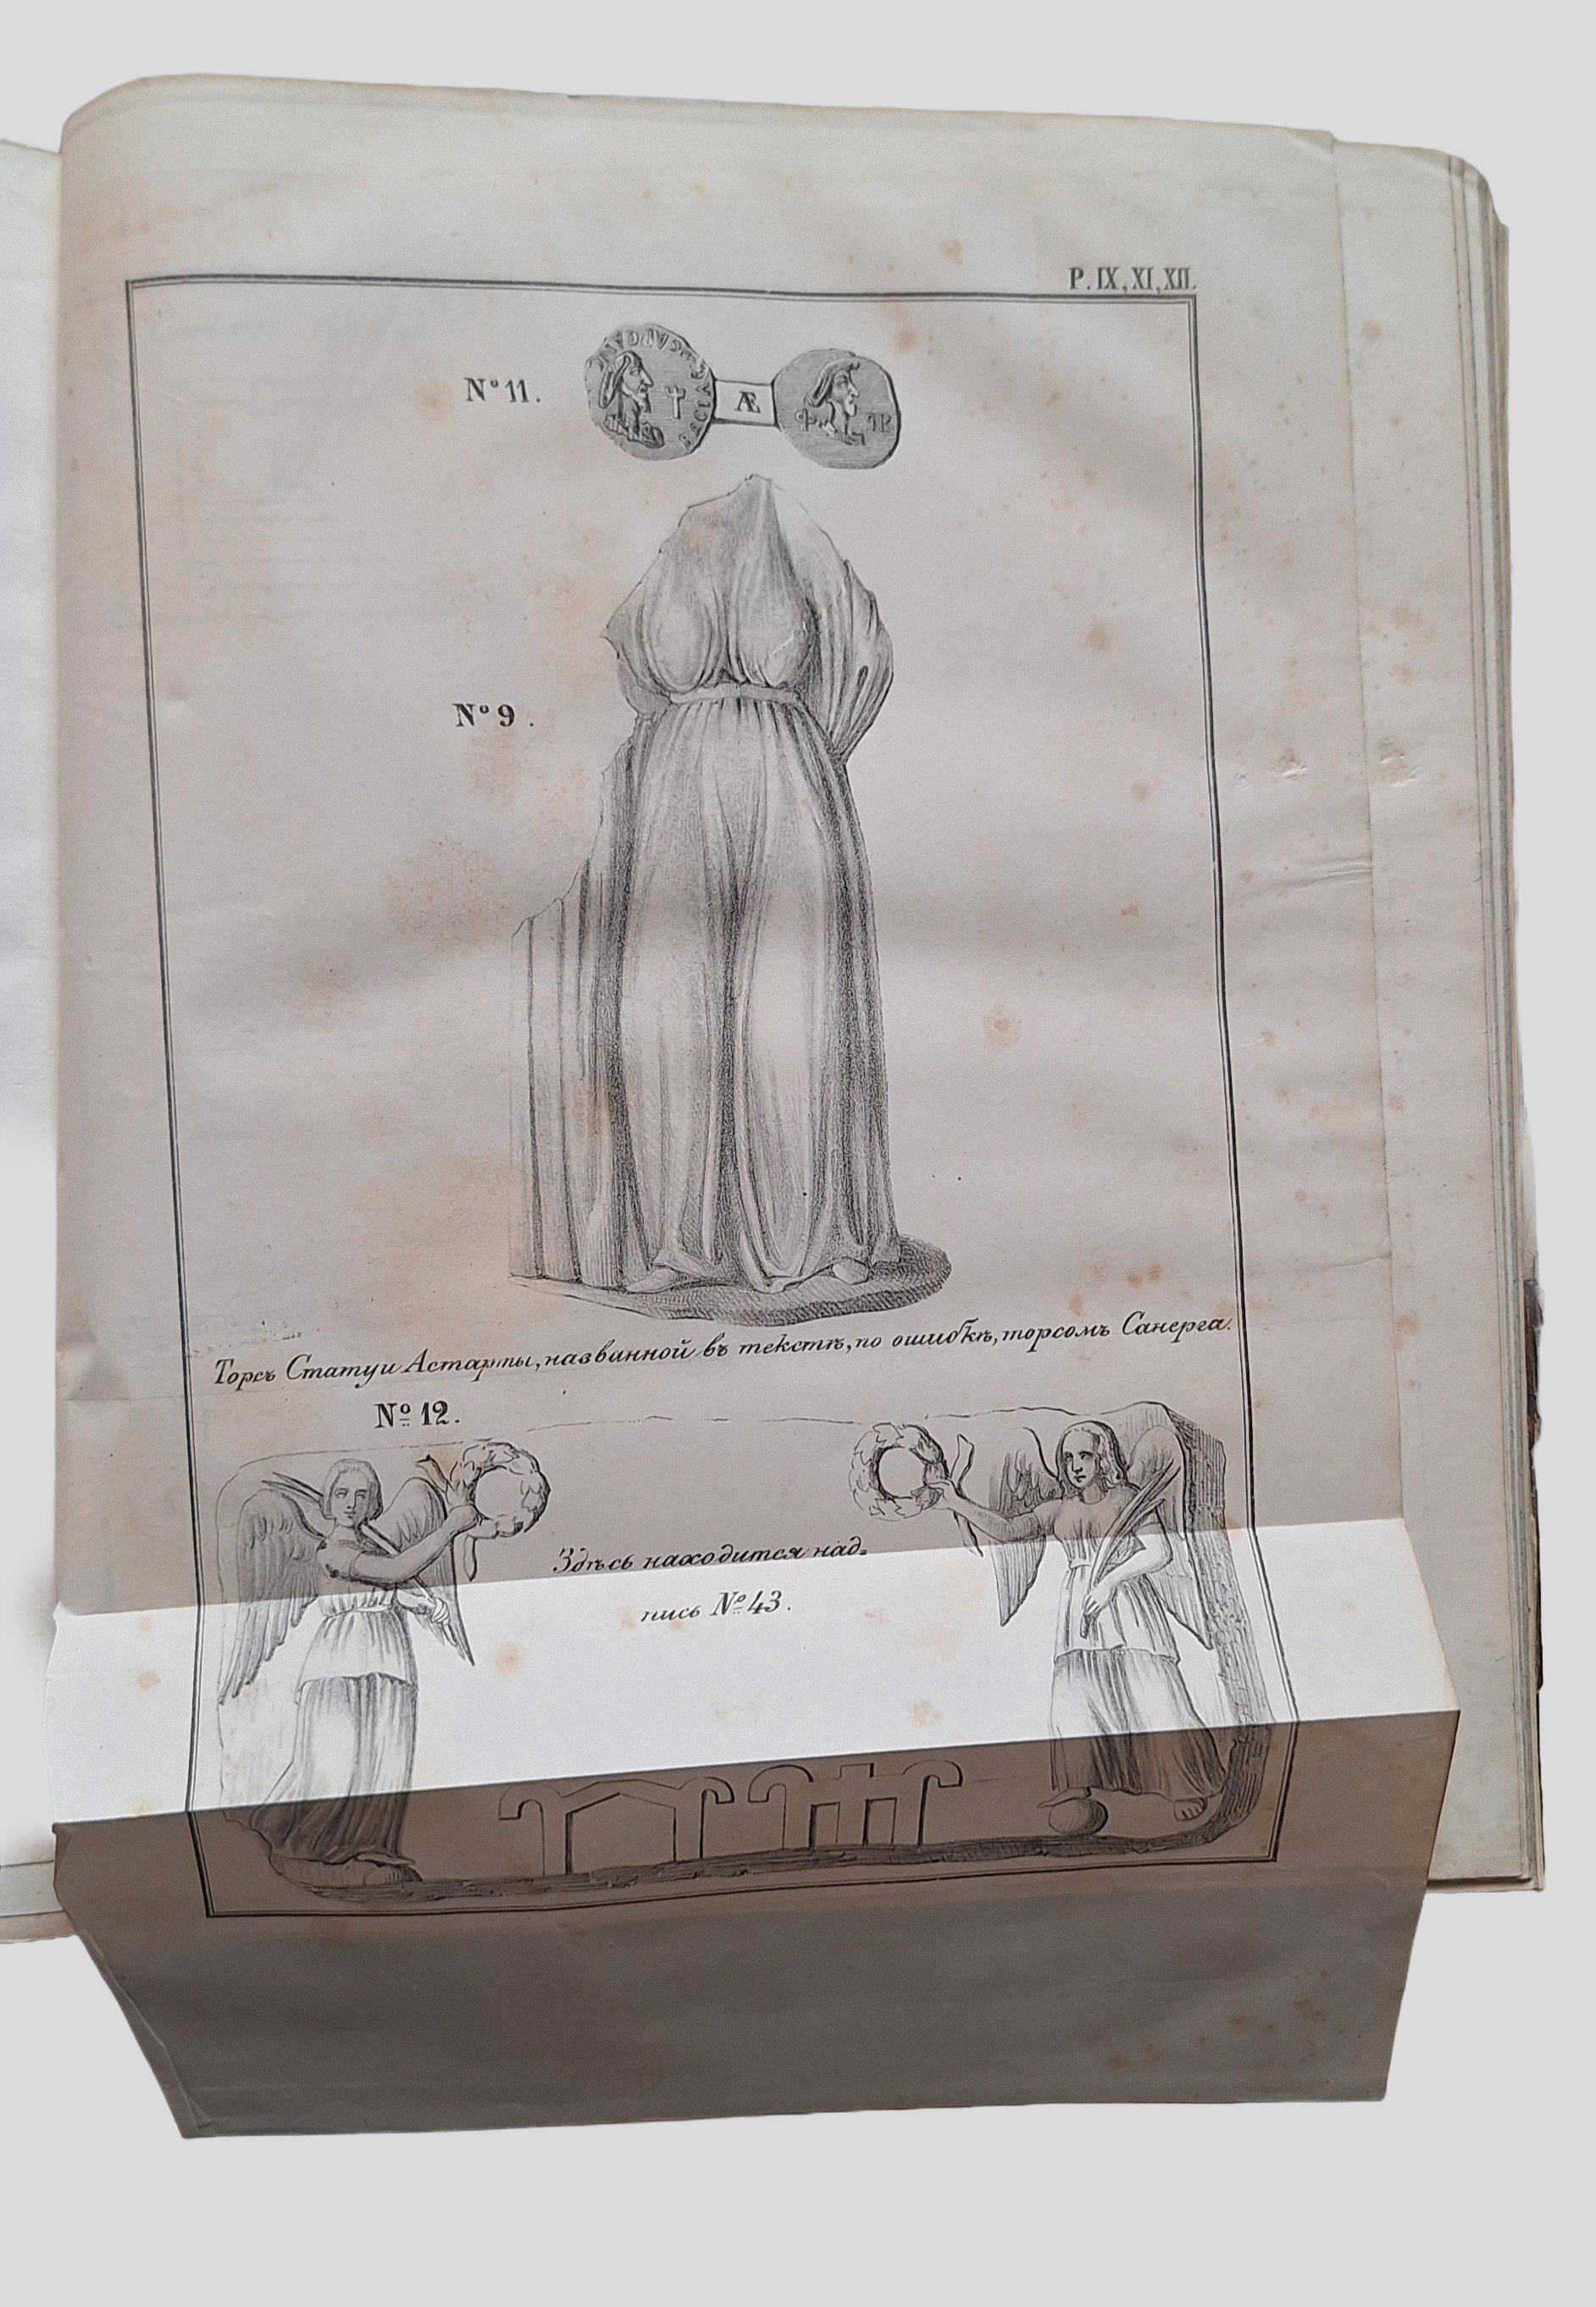 Р. IX, XI, XII.
Nº 11.
Æ
Nº 9.
Торсъ Статуи Астарты, названной въ текстѣ, по ошибкѣ, торсомъ Санерга.
Nº 12.
Здѣсь находится над=
пись Nº 43.